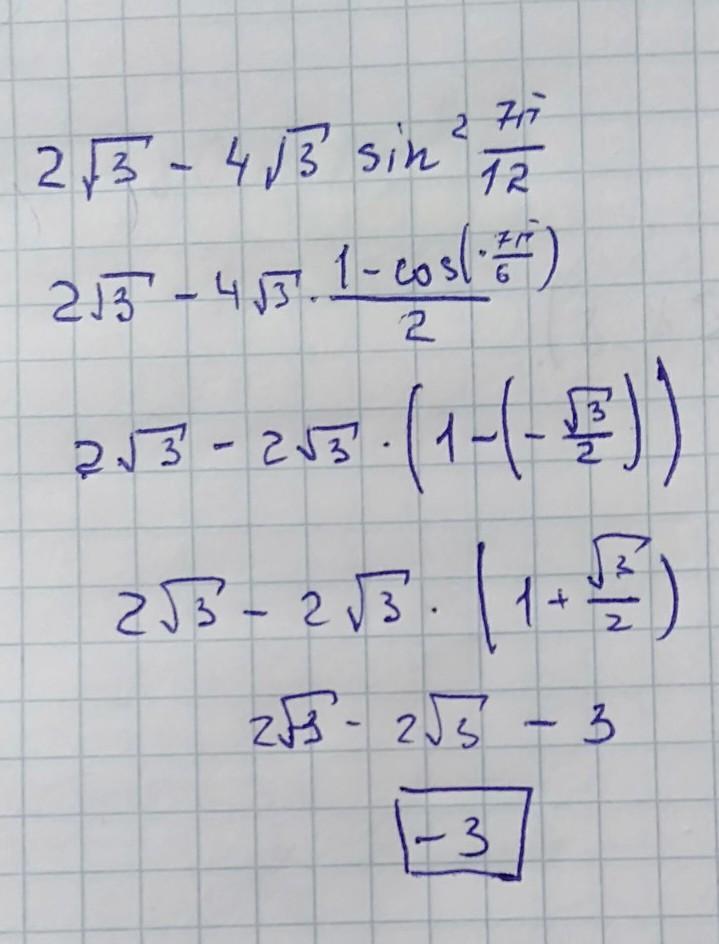 2√3 - 4√3 sin² 7π/12
2√3 - 4√3 · (1 - cos(· 7π/6))/2
2√3 - 2√3 · (1 - (- √3/2))
2√3 - 2√3 · (1 + √3/2)
2√3 - 2√3 - 3
-3